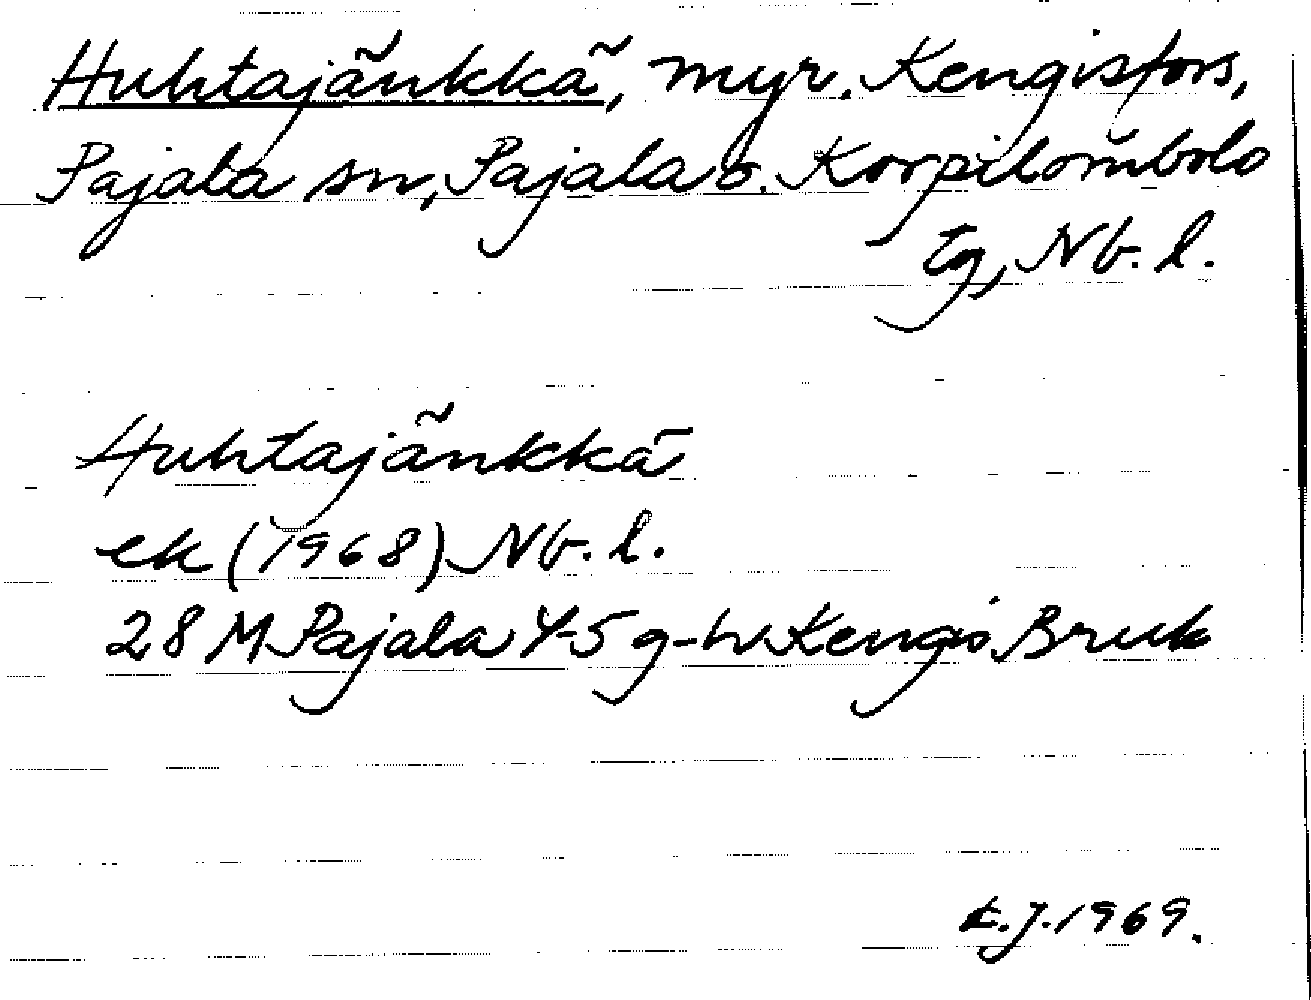 Huhtajänkkä, myr. Kengisfors,
Pajala sn, Pajala o. Korpilombolo
tg, Nb. l.
Huhtajänkkä
ek (1968) Nb. l.
28 M Pajala 4-5 g-h Kengis Bruk
E.J. 1969.